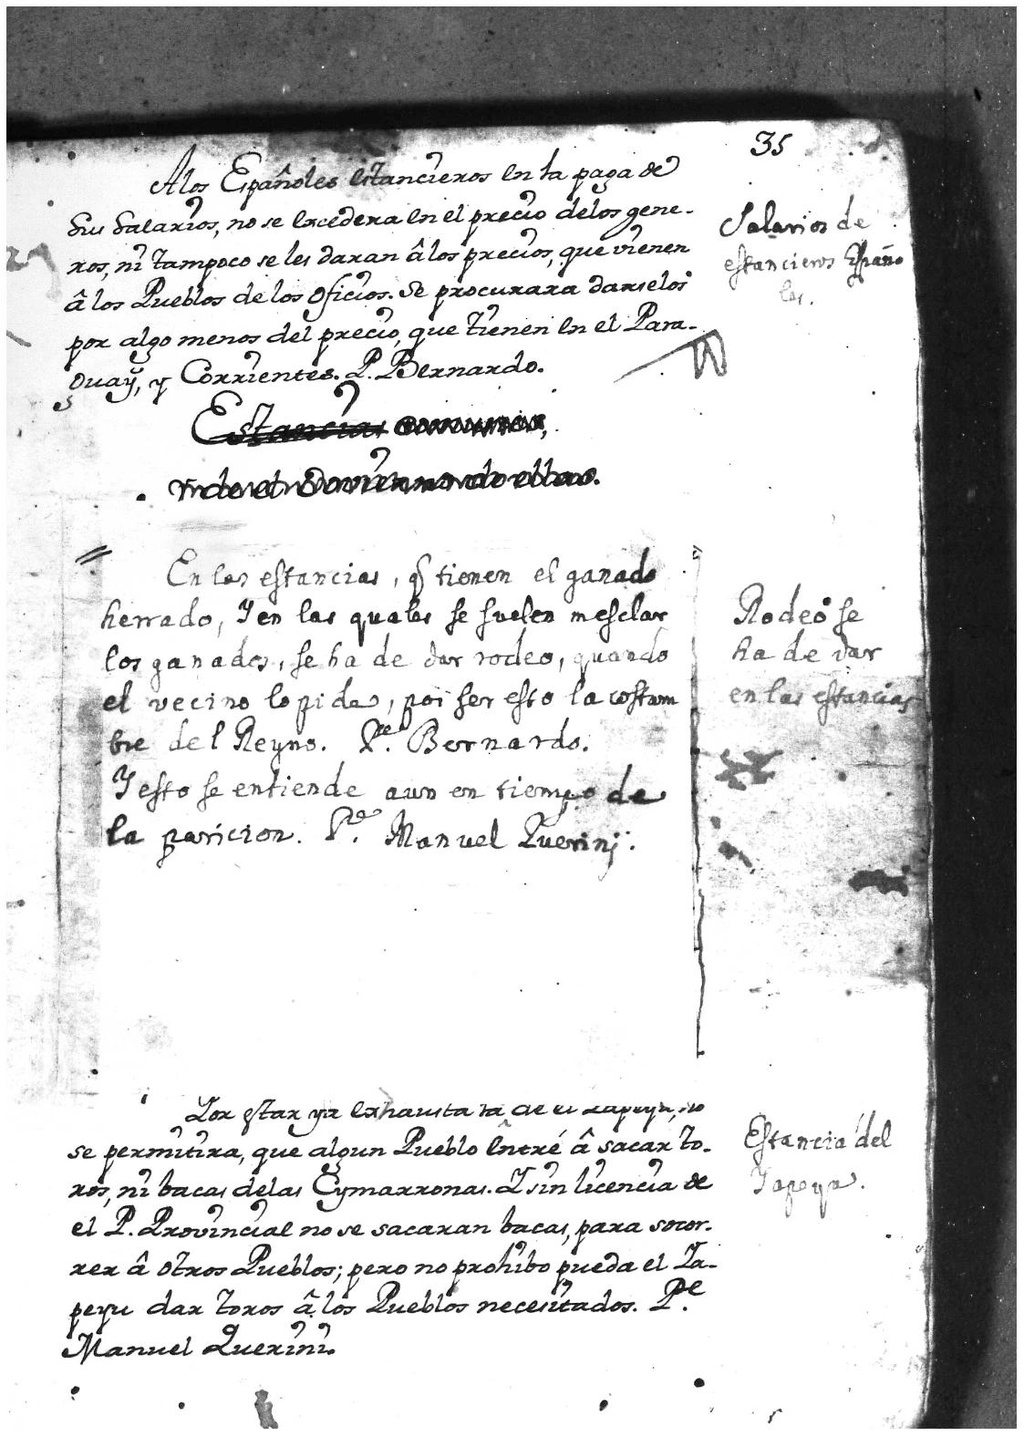 35
A los Españoles estancieros en la paga de
sus salarios, no se excedera en el precio delos gene-
ros, ni tampoco se les daran â los precios, que vienen
â los Pueblos de los Oficios. Se procurara darselos
por algo menos del precio, que tienen en el Para-
guaÿ, y Corrientes. P. Bernardo.
Salarios de
estancieros Españo
les.
Estancias comunes,
vide el Govierno de ellas.
En las estancias, q̃ tienen el ganado
herrado, Y en las quales se suelen mesclar
los ganados, se ha de dar rodeo, quando
el vecino lo pide, poi ser esto la costum
bre del Reyno. Pe. Bernardo.
Y esto se entiende aun en tiempo de
la paricion. Pe. Manuel Querinj.
Rodeo se
ha de dar
en las estancias
Por estar ya exhausta la de el Yapeyu, no
se permitira, que algun Pueblo êntré â sacar to-
ros, ni bacas delas Cymarronas. Y sin licencia de
el P. Provincial no se sacaran bacas, para socor-
rer â otros Pueblos; pero no prohibo pueda el Ya-
peyu dar toros â los Pueblos necesitados. Pe.
Manuel Querini.
Estancia del
Yapeyu.